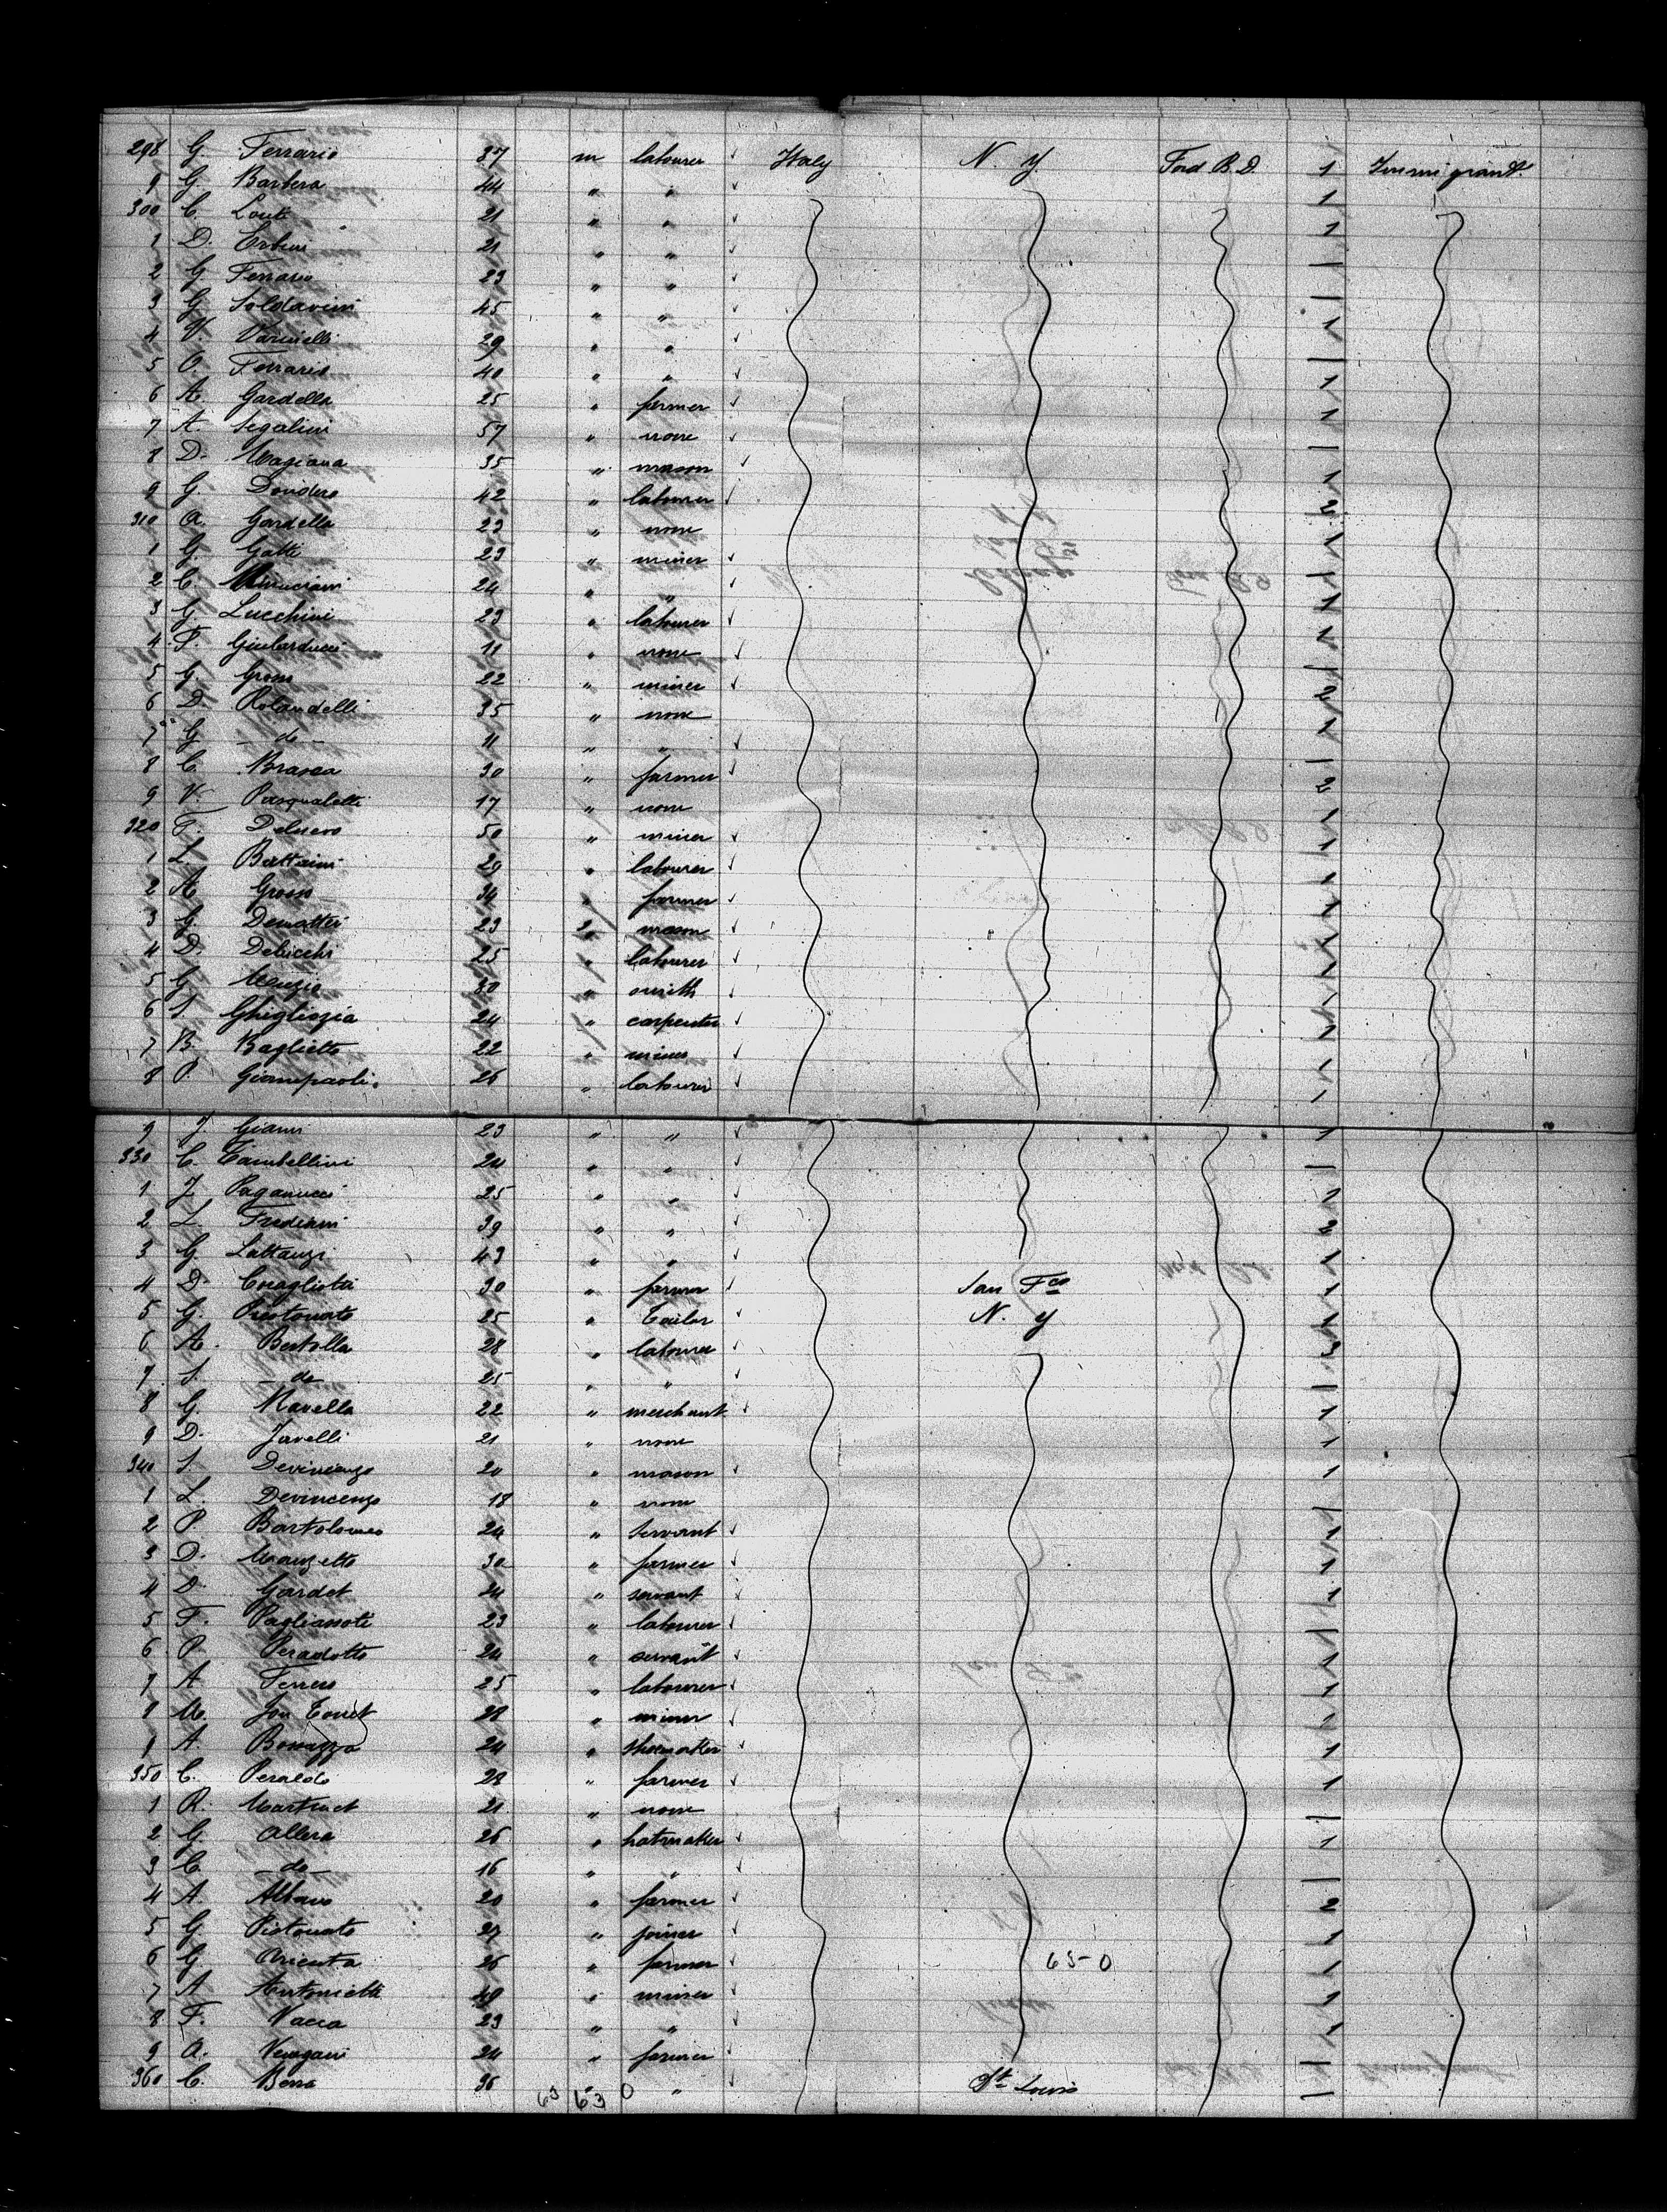 298 G. Ferrario 37 m labourer Italy N. Y. Ford B.D. 1 Immigrant
9 G. Barbera 44 " " 1
300 C. Louti 21 " " 1
1 D. 21 " "
2 G Ferrario 23 " "
3 G Soldavini 45 " " 1
4 V. Varinelli 29 " "
5 O. Ferrario 40 " " 1
6 A. Gardella 25 " farmer 1
7 A. Segalini 57 " none
8 D. Magiana 35 " mason 1
9 G. Davidero 42 " labourer 2
310 A. Gardella 23 " none 1
1 G. Gatti 23 " miner 1
2 C. 24 " " 1
3 G. Lucchini 23 " labourer 1
4 P. Giularducci 11 " none
5 G. Gross 22 " miner 2
6 D. Rolandelli 35 " none 1
7 G - do - 11 " "
8 C. Brasca 30 " farmer 2
9 V. Pasqualetti 17 " none 1
320 F. Delucro 50 " miner 1
1 L. Battaini 29 " labourer 1
2 A. Gross 34 " farmer 1
3 G. Demattei 23 " mason 1
4 D. Delucchi 25 " labourer 1
5 G. 30 " smith 1
6 S. Ghigliazia 24 " carpenter 1
7 B. Baglietto 22 " miner 1
8 P. Giampaoli. 26 " labourer 1
9 J. Gianni 23 " " 1
330 C. Tambellini 24 " "
1 J. Paganucci 25 " " 1
2 L. Frediani 39 " " 2
3 G. Lattanzi 43 " " 1
4 D. 30 " farmer San Fco 1
5 G. Pistonato 25 " Tailor N. Y 1
6 A. Bertolla 28 " labourer 3
7 S. - do - 25 " "
8 G. Ravella 22 " merchant 1
9 D. Javelli 21 " none 1
340 S. Devincenzo 20 " mason 1
1 L. Devincenzo 18 " none
2 P. Bartolomeo 24 " servant 1
3 D. Manzetto 30 " farmer 1
4 D. Gardet 24 " servant 1
5 F. Paglianoti 23 " labourer
6 P. Peradotto 24 " servant 1
7 A Ferrero 25 " labourer 1
8 M. Jon Tonet 28 " miner 1
9 A. Bonazzo 24 " shoemaker 1
350 C. Peraldo 28 " farmer 1
1 R. Martinet 21 " none
2 G. Allera 26 " hatmaker 1
3 C. - do - 16 " "
4 A. Albano 20 " farmer 2
5 G Pistonato 27 " joiner 1
6 G Orienta 26 " farmer 65-0 1
7 A Antonietti 40 " miner 1
8 F. Vacca 23 " " 1
9 A. Venegani 24 " farmer
360 C. Berra 36 " " St Louis
63 63 0